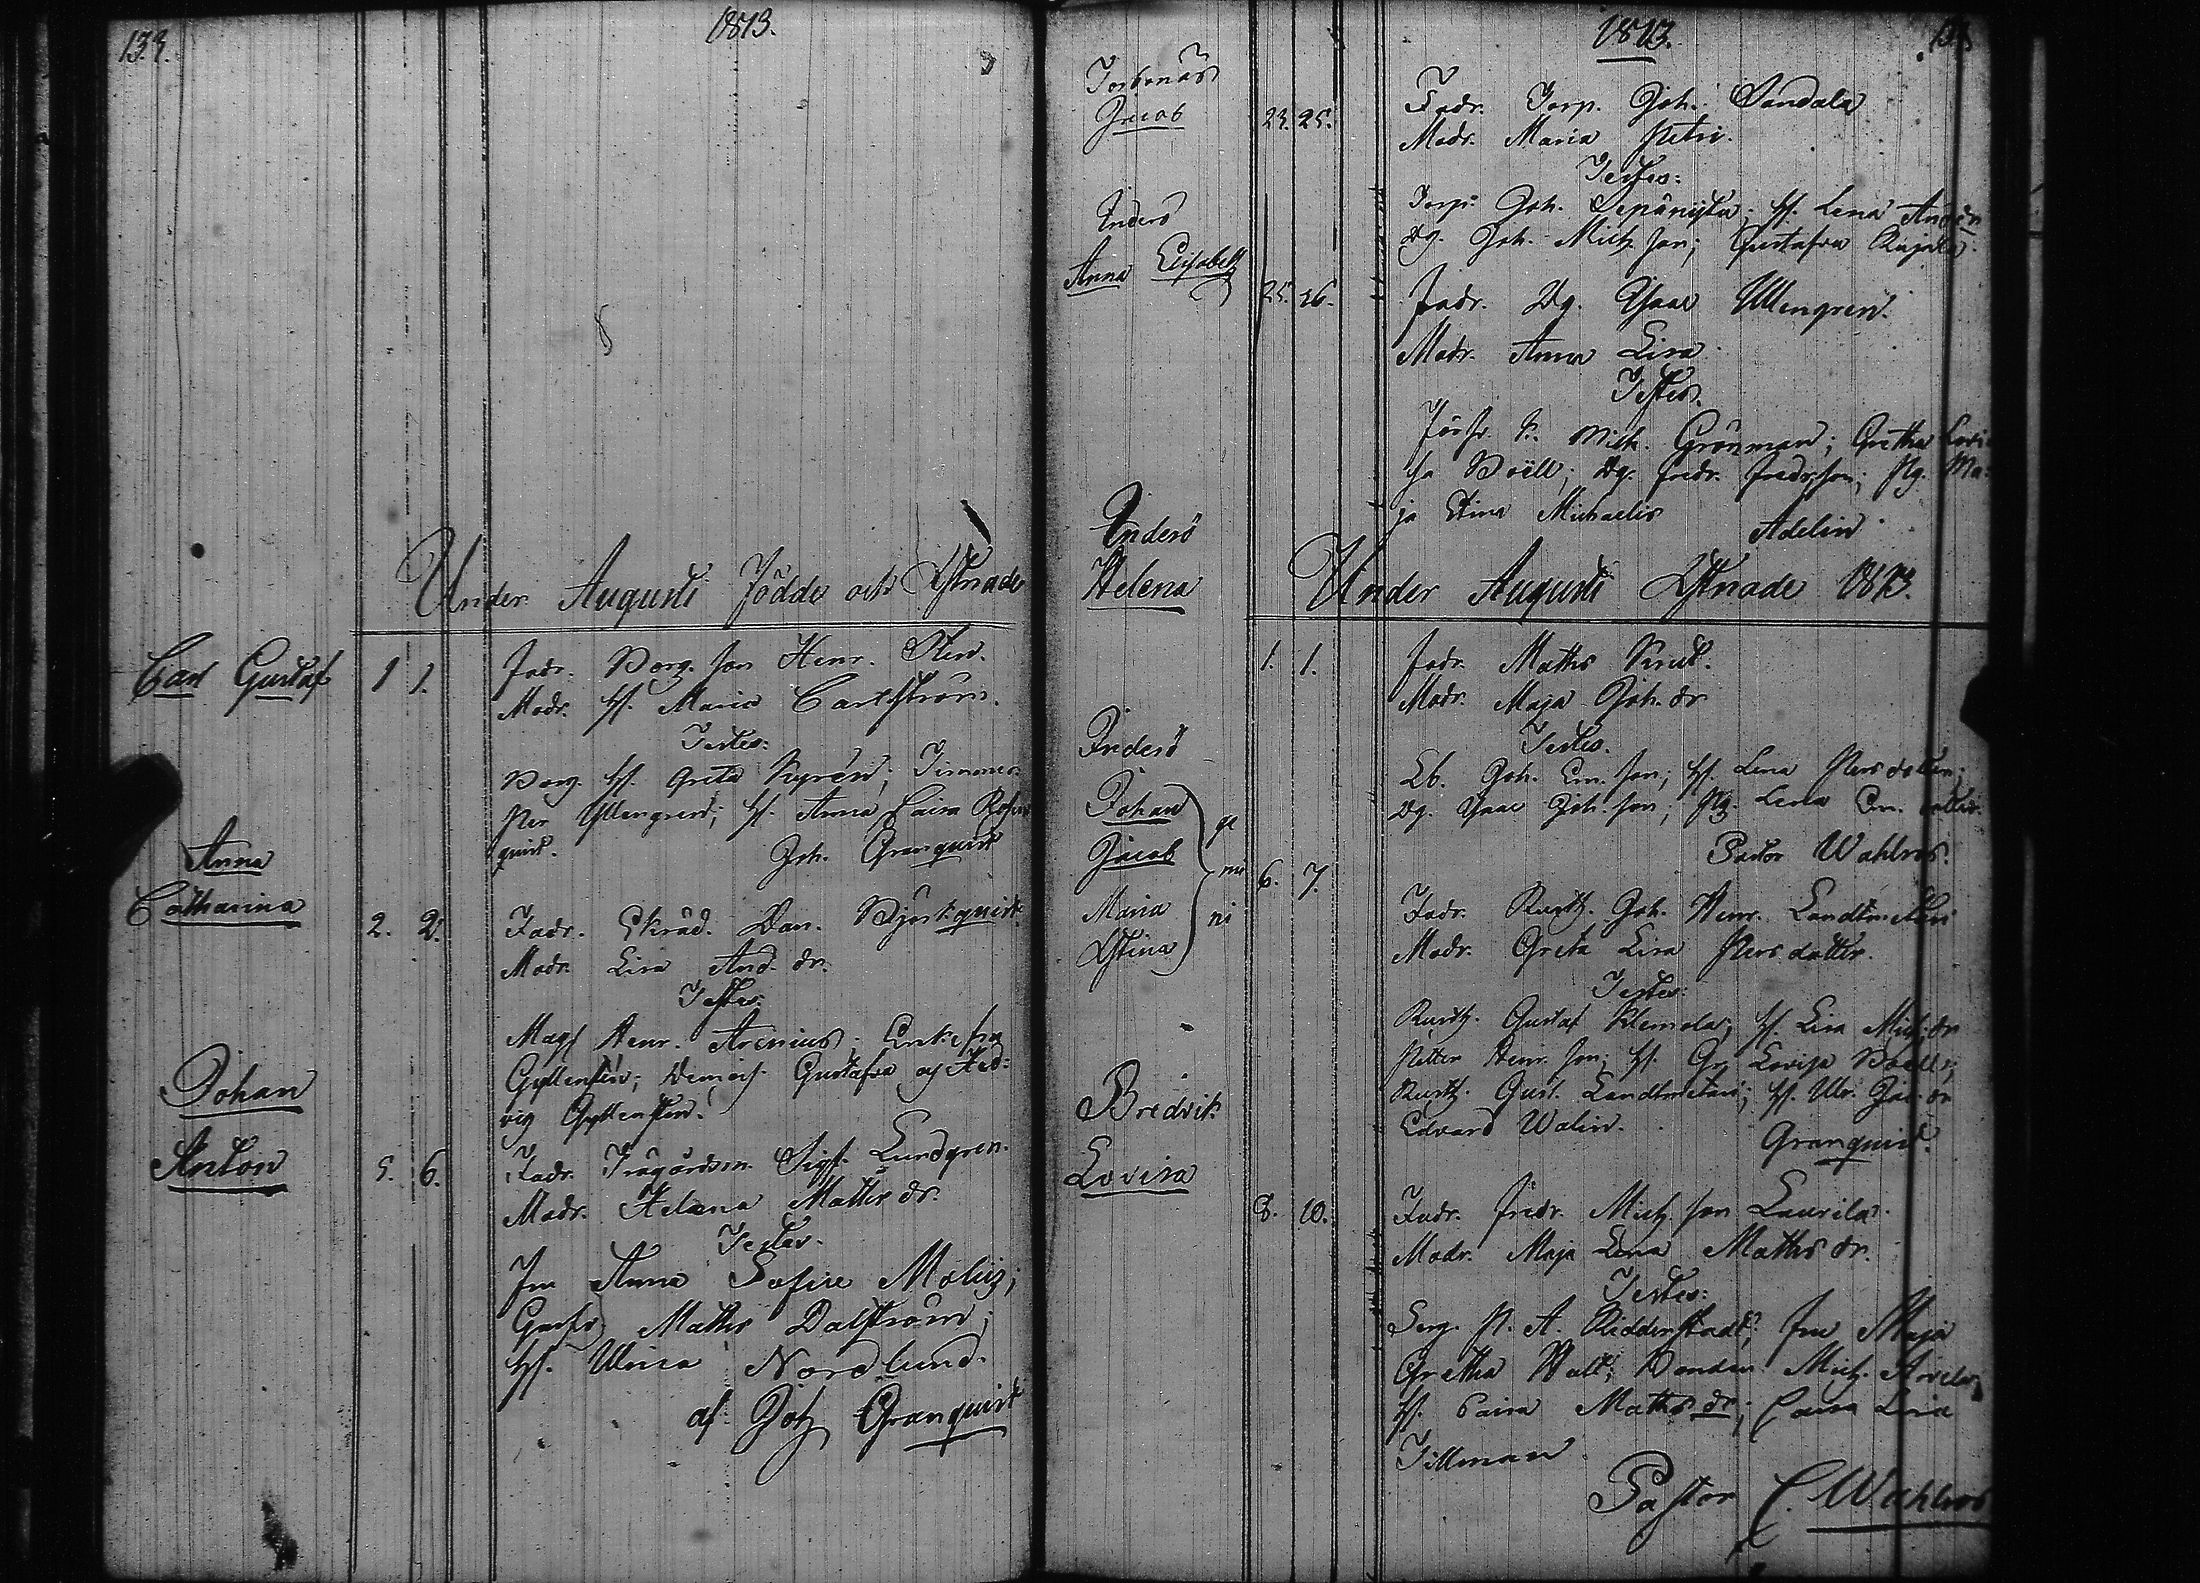 133.
1813.
Under Augusti Födde och Xstnade
Carl Gustaf 1 1. Fadr. Borg. son Henr. Sten.
Modr. H. Maria Carlström.
Testes:
Borg. H. Greta Kyrén; Timmer.
Per Ullengren; H. Anna Caisa Rosen
quist. Joh. Granquist
Anna
Catharina 2. 2. Fadr. Skräd. Dan. Björkquist
Modr. Lisa And. dr.
Testes:
Mag Henr. Arenius; Enkefru
Gyllenstén; Demois. Gustafva och Hed-
vig Gyllensten.
Johan
Anton 5. 6. Fadr. Trägårdsm. Sigf. Lundgren.
Modr. Helena Matts dr.
Testes.
Fru Anna Sofie Moliis;
Maths Dalström;
H. Ulrica Nordlund.
af Joh Granquist
1813.
Torsnäs
Jacob 23. 25. Fadr. Torp. Joh. Sandala
Modr. Maria Petri.
Testes:
Torp. Joh. H. Lena Anders
Dg. Joh. Mich. son; Gustafva
Inderö
Anna Elisabeth 25. 26. Fadr. Dg. Isaac Ullengren.
Modr. Anna Lisa.
Testes.
Mich. Grönman; Gretha Lovi-
sa Boëll; Dg. Fredr. Fredr. son; Pg. Ma-
ja Stina Michaelis Adelin.
Under Augusti Xstnade 1813.
Inderö
Helena 1. 1. Fadr. Matts Knut.
Modr. Maja Joh. dr
Testes.
Eb. Joh. Em. son; H. Lena Persdotter;
Dg. Isaac Joh. son; Pg. Lena Em. dotter.
Pastor Wahlros.
Inderö
Johan
Jacob
Maria
Xstina
ge
mi
ni 6. 7. Fadr. Rusth. Joh. Henr. Landtmeteri
Modr. Greta Lisa Persdotter.
Testes:
Rusth. Gustaf Klemola; H. Lisa Mich. dr
Petter Henr. son; H. Gr. Lovisa Boëll;
Rusth. Gust. Landtmeteri; H. Ulr. Jac. dr
Edvard Walin. Granquist.
Bredvik
Lovisa 8. 10. Fadr. Fredr. Mich. son Laurila.
Modr. Maja Lena Matths dr.
Testes:
Serg. P. A. Ridderstadt; Fru Maja
Gretha Wall; Bonden Mich. Arvela;
H. Caisa Matths dr; Caisa Lisa
Tillman
Pastor C. Wahlros